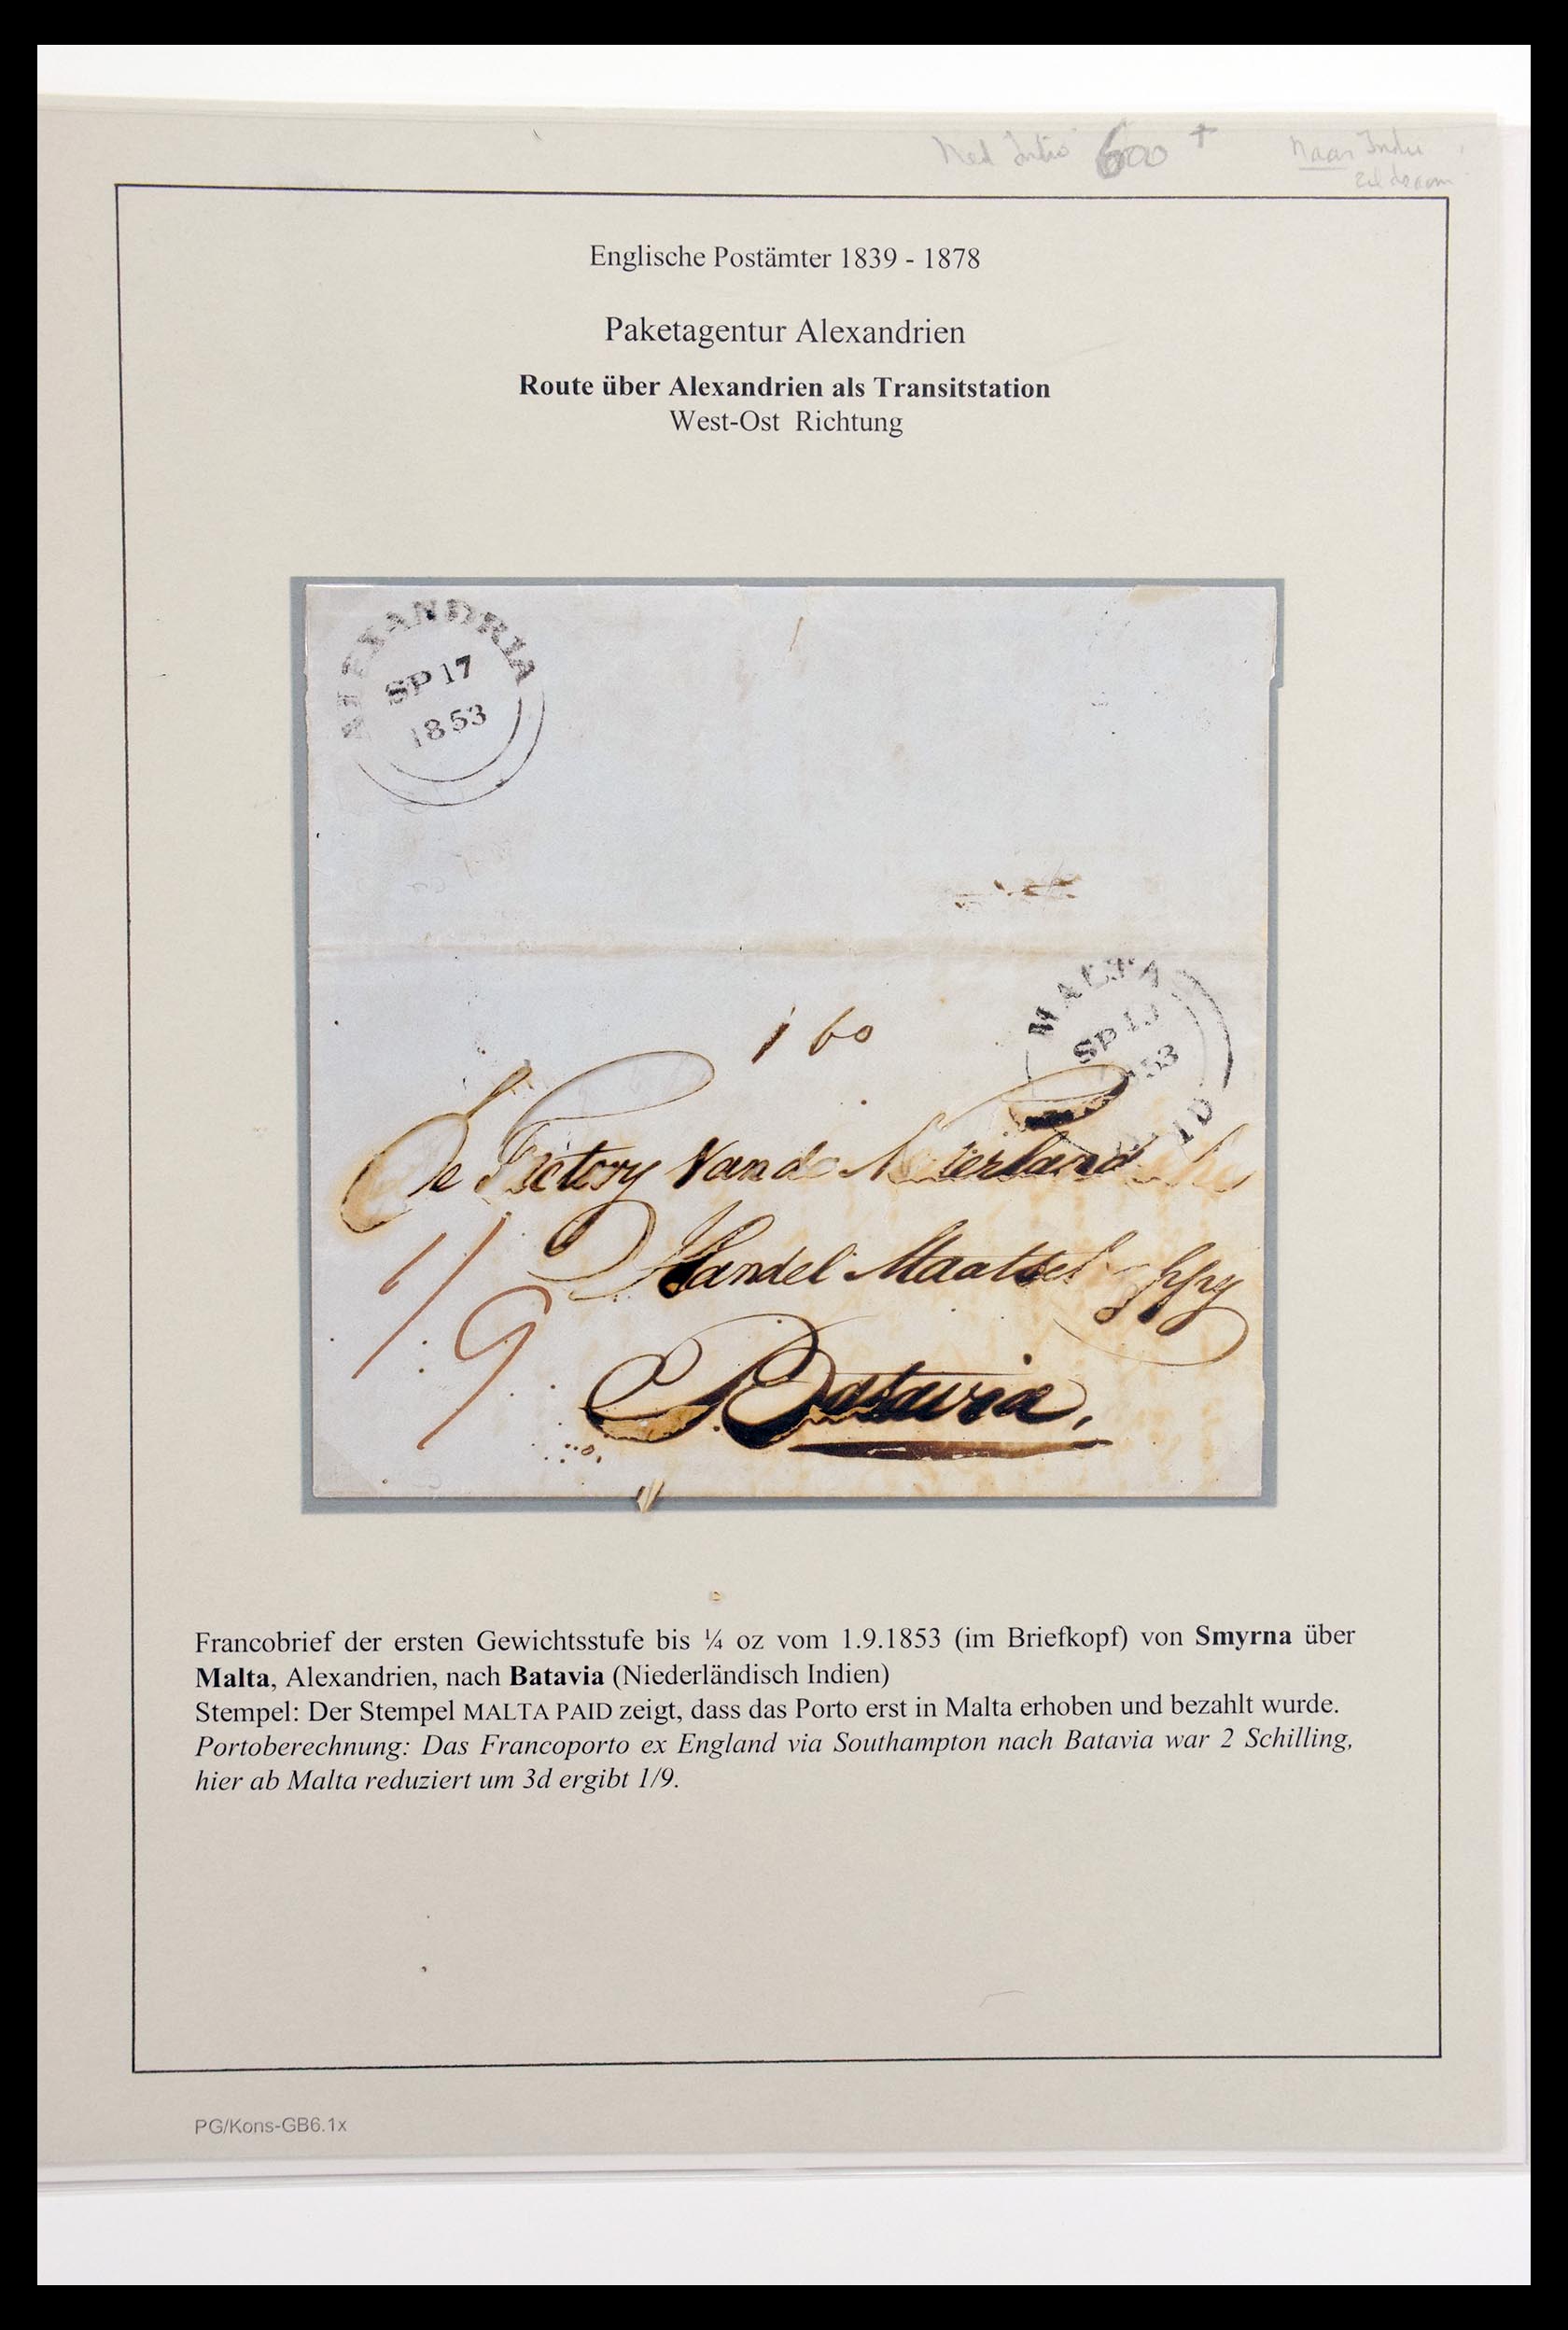 Ned Indië 600 +
Naar Indië
Englische Postämter 1839 - 1878
Paketagentur Alexandrien
Route über Alexandrien als Transitstation
West-Ost Richtung
ALEXANDRIA
SP 17
1853
MALTA
SP
53
1 60
De Factory Van de
Handel
1/9
Batavia,
Francobrief der ersten Gewichtsstufe bis ¼ oz vom 1.9.1853 (im Briefkopf) von Smyrna über
Malta, Alexandrien, nach Batavia (Niederländisch Indien)
Stempel: Der Stempel MALTA PAID zeigt, dass das Porto erst in Malta erhoben und bezahlt wurde.
Portoberechnung: Das Francoporto ex England via Southampton nach Batavia war 2 Schilling,
hier ab Malta reduziert um 3d ergibt 1/9.
PG/Kons-GB6.1x